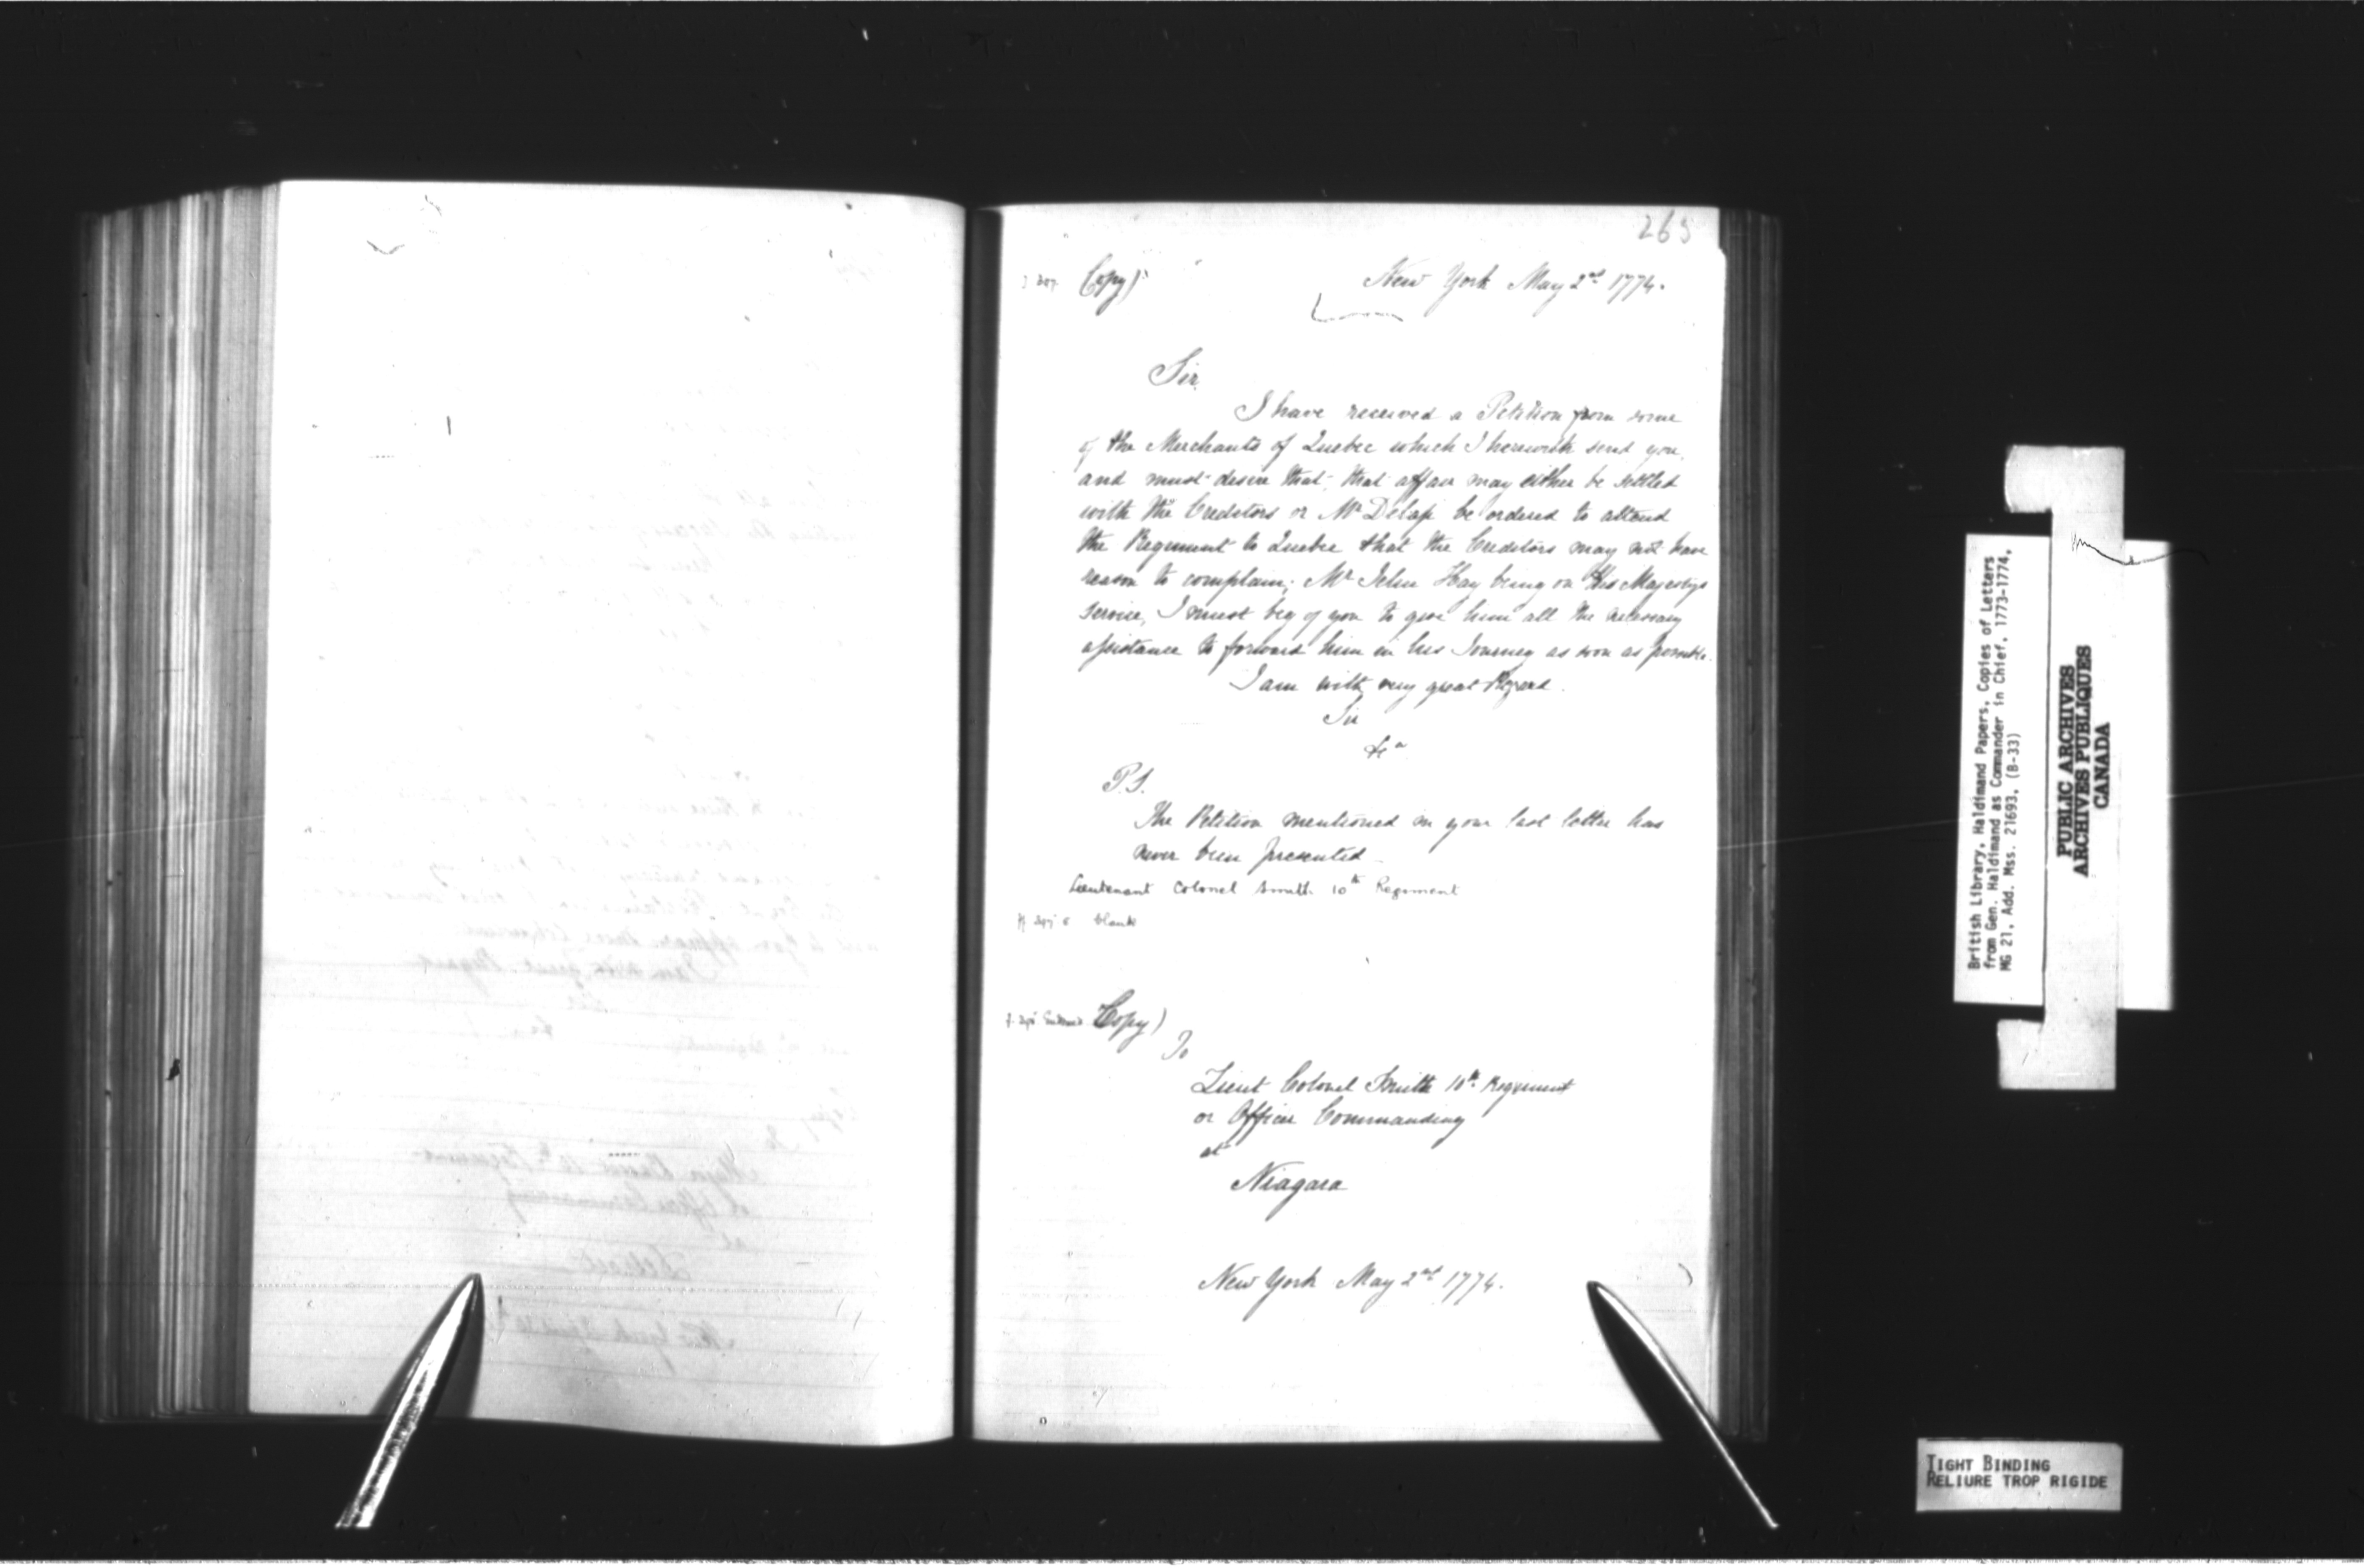 265
Copy)
New York May 2nd 1774.
Sir
I have received a Petition from some
of the Merchants of Quebec which I herewith send you,
and must desire that, that affair may either be settled
with the Creditors or Mr Delap be ordered to attend
the Regiment to Quebec that the Creditors may not have
reason to complain; Mr John Hay being on His Majestys
Service, I must beg of you to give him all the necessary
assistance to forward him in his Journey as soon as possible.
I am with very great Regard.
Sir
&ca
P.S.
The Petition mentioned in your last letter has
never been presented
Lieutenant Colonel Smith 10th Regiment
blank
Copy)
To
Lieut Colonel Smith 10th Regiment
or Officer Commanding
at
Niagara
New York May 2nd 1774.
British Library, Haldimand Papers, Copies of Letters
from Gen. Haldimand as Commander in Chief, 1773-1774,
MG 21, Add. Mss. 21693, (B-33)
PUBLIC ARCHIVES
ARCHIVES PUBLIQUES
CANADA
TIGHT BINDING
RELIURE TROP RIGIDE